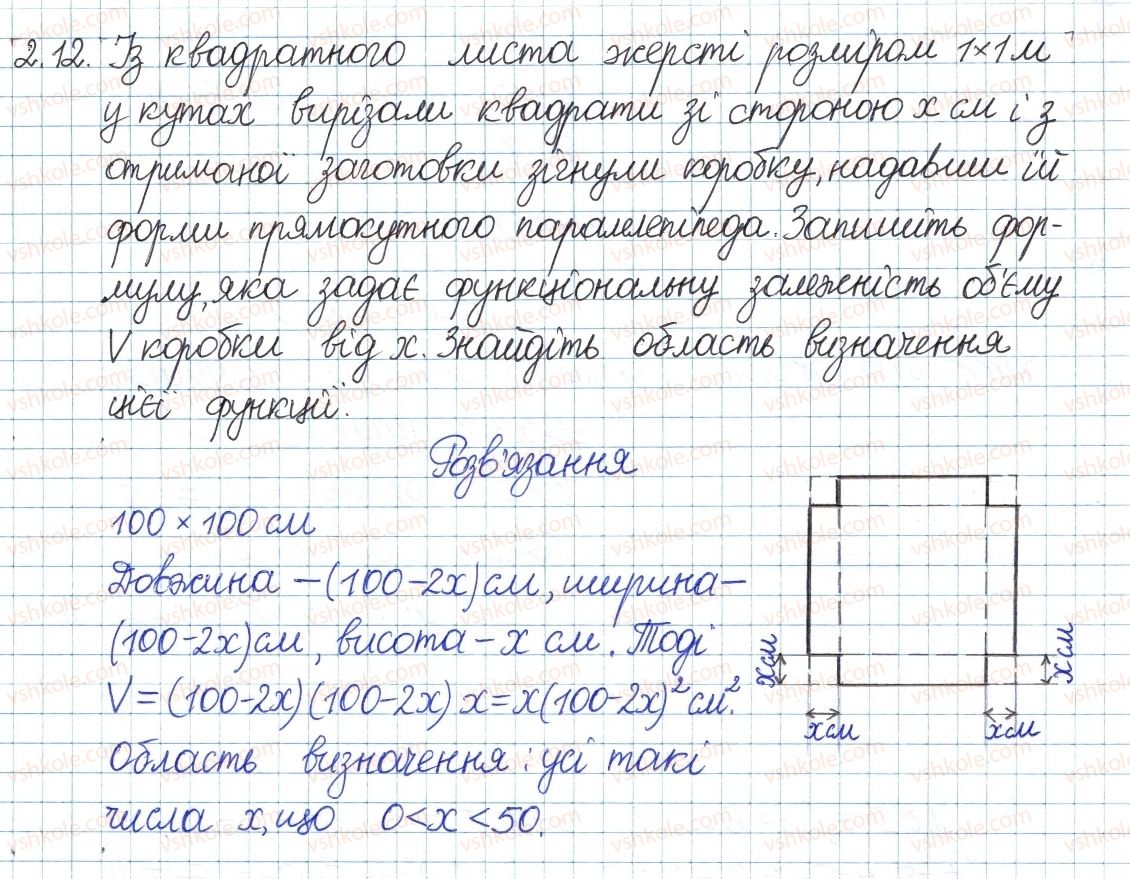 2.12. Із квадратного листа жерсті розміром 1×1 м
у кутах вирізали квадрати зі стороною х см і з
отриманої заготовки зігнули коробку, надавши їй
форми прямокутного паралелепіпеда. Запишіть фор-
мулу, яка задає функціональну залежність об'єму
V коробки від х. Знайдіть область визначення
цієї функції.
Розв'язання
100 × 100 см
Довжина – (100-2x) см, ширина –
(100-2x) см, висота – х см. Тоді
V = (100-2x)(100-2x) x = x(100-2x)² см².
Область визначення: усі такі
числа х, що 0<x<50.
х см
х см
х см
х см
vshkole.com